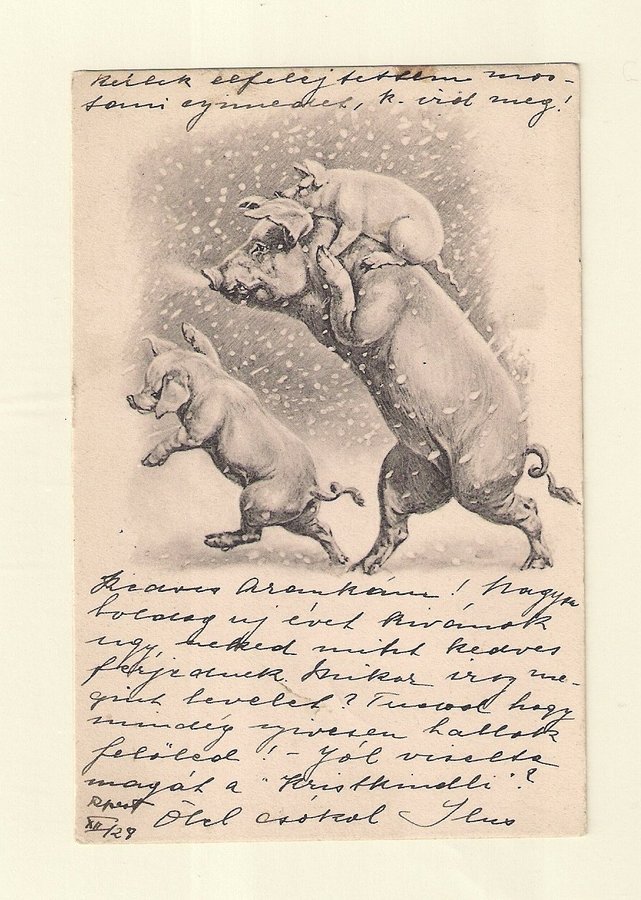 Kérlek elfelejtettem mos-
tani czimedet, k. ird meg!
Kedves Arankám! Nagyon
boldog uj évet kivánok
ugy neked mint kedves
férjednek. Mikor irsz me-
gint levelet? Tudod hogy
mindég szivesen hallok
felöled! - Jól viselte
magát a "Kristkindli"?
Bpest
XII/28 Ölel csókol Ilus